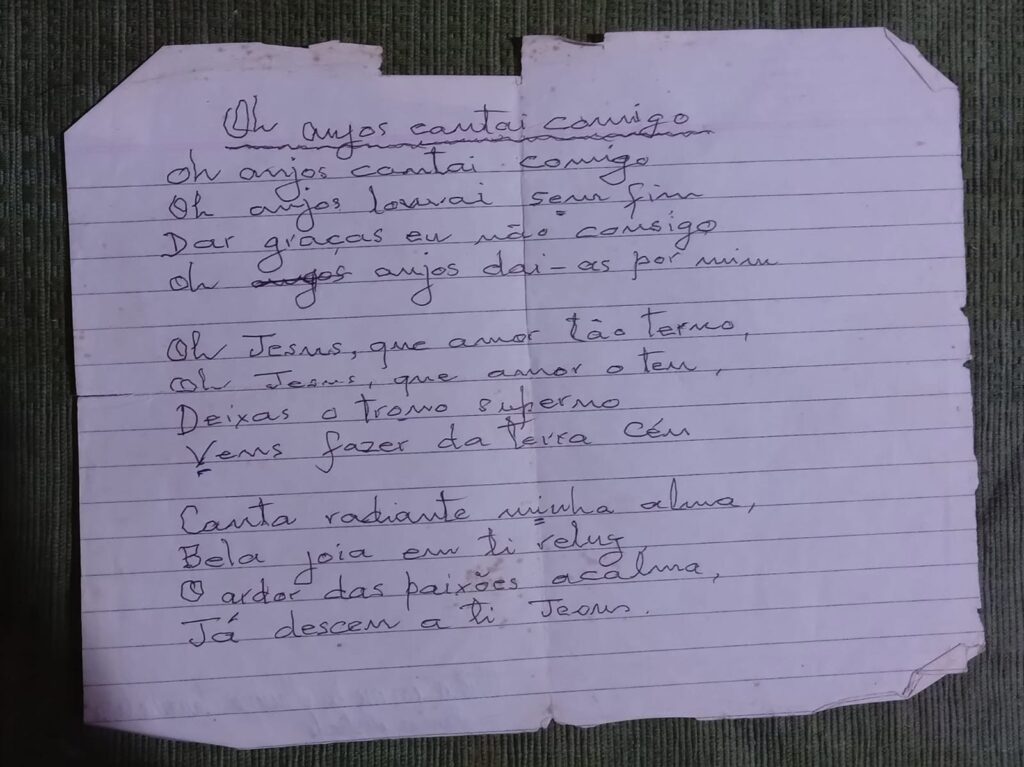 Oh anjos cantai comigo
Oh anjos cantai comigo
Oh anjos louvai sem fim
Dar graças eu não consigo
Oh anjos dai-as por mim
Oh Jesus, que amor tão terno,
Oh Jesus, que amor o teu,
Deixas o trono superno
Vens fazer da terra Céu
Canta radiante minha alma,
Bela joia em ti reluz,
O ardor das paixões acalma,
Já desceu a ti Jesus.